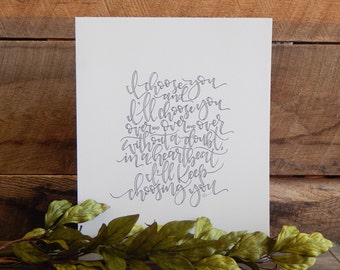 I choose you
and
I'll choose you
over and over and over
without a doubt,
in a heartbeat
I'll keep
choosing you